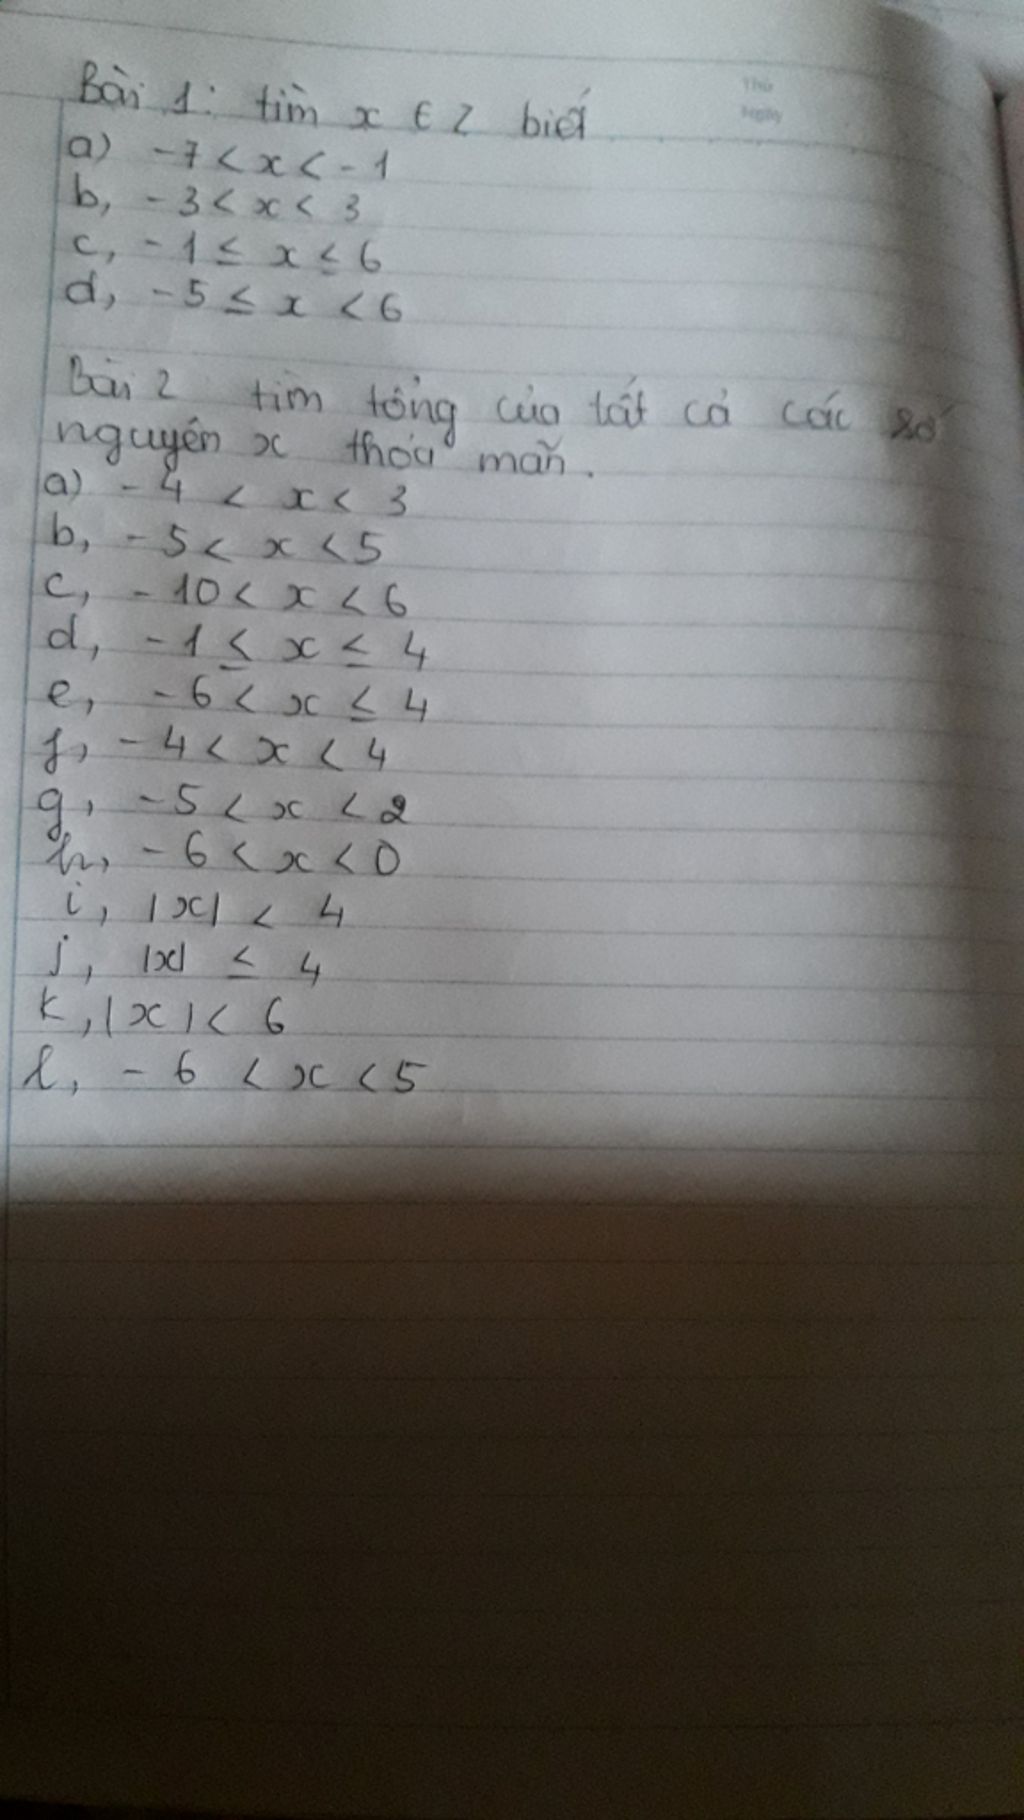 Thứ
Ngày
Bài 1: tìm x ∈ Z biết
a) -7 < x < -1
b, -3 < x < 3
c, -1 ≤ x ≤ 6
d, -5 ≤ x < 6
Bài 2 tìm tổng của tất cả các số
nguyên x thỏa mãn.
a) -4 < x < 3
b, -5 < x < 5
c, -10 < x < 6
d, -1 ≤ x ≤ 4
e, -6 < x ≤ 4
f, -4 < x < 4
g, -5 < x < 2
h, -6 < x < 0
i, |x| < 4
j, |x| ≤ 4
k, |x| < 6
l, -6 < x < 5